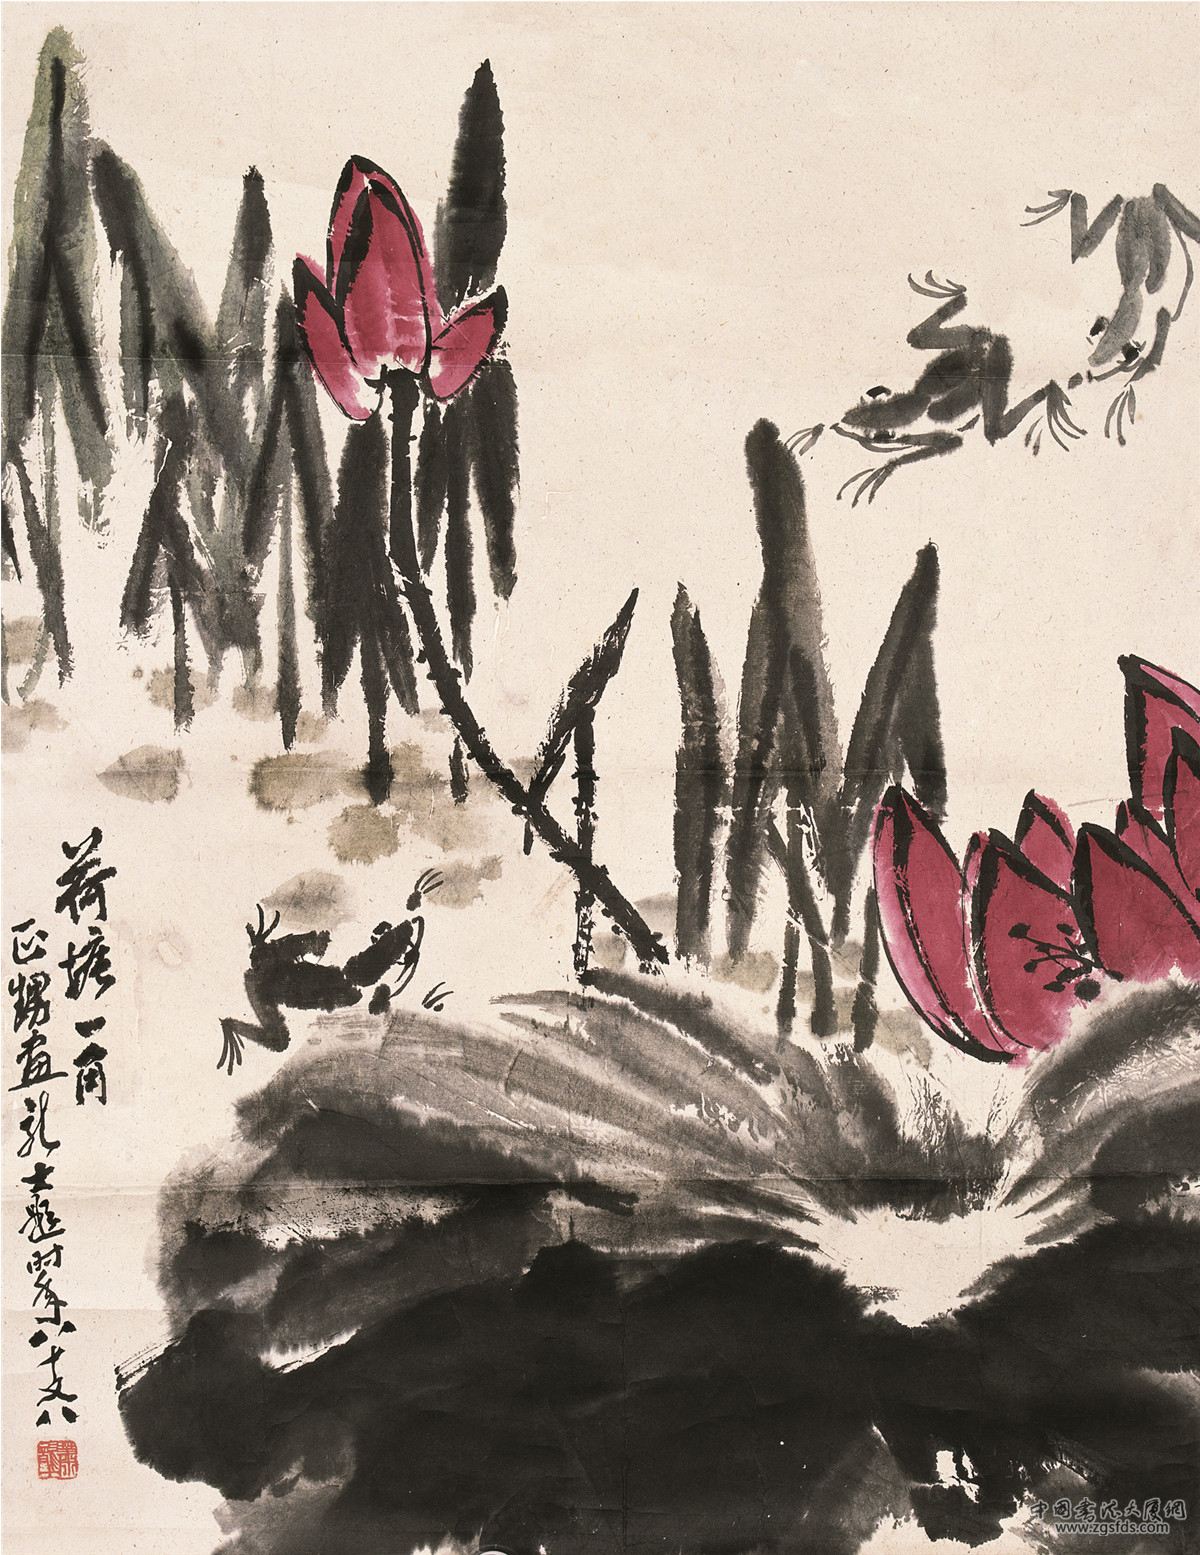 荷塘一角
正甥画龙士题时年八十又八
中国书法大厦网
www.zgsfds.com